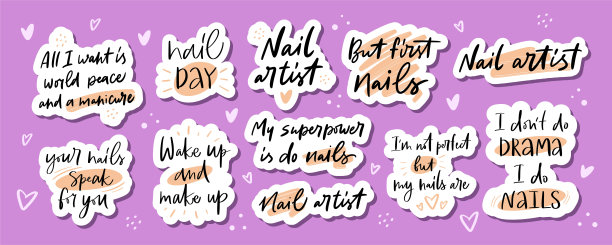 All I want is
world peace
and a manicure
nail
DAY
Nail
artist
But first
nails
Nail artist
your nails
speak
for you
Wake up
and
make up
My superpower
is do nails
Nail artist
I'm not perfect
but
my nails are
I don't do
DRAMA
I do
NAILS